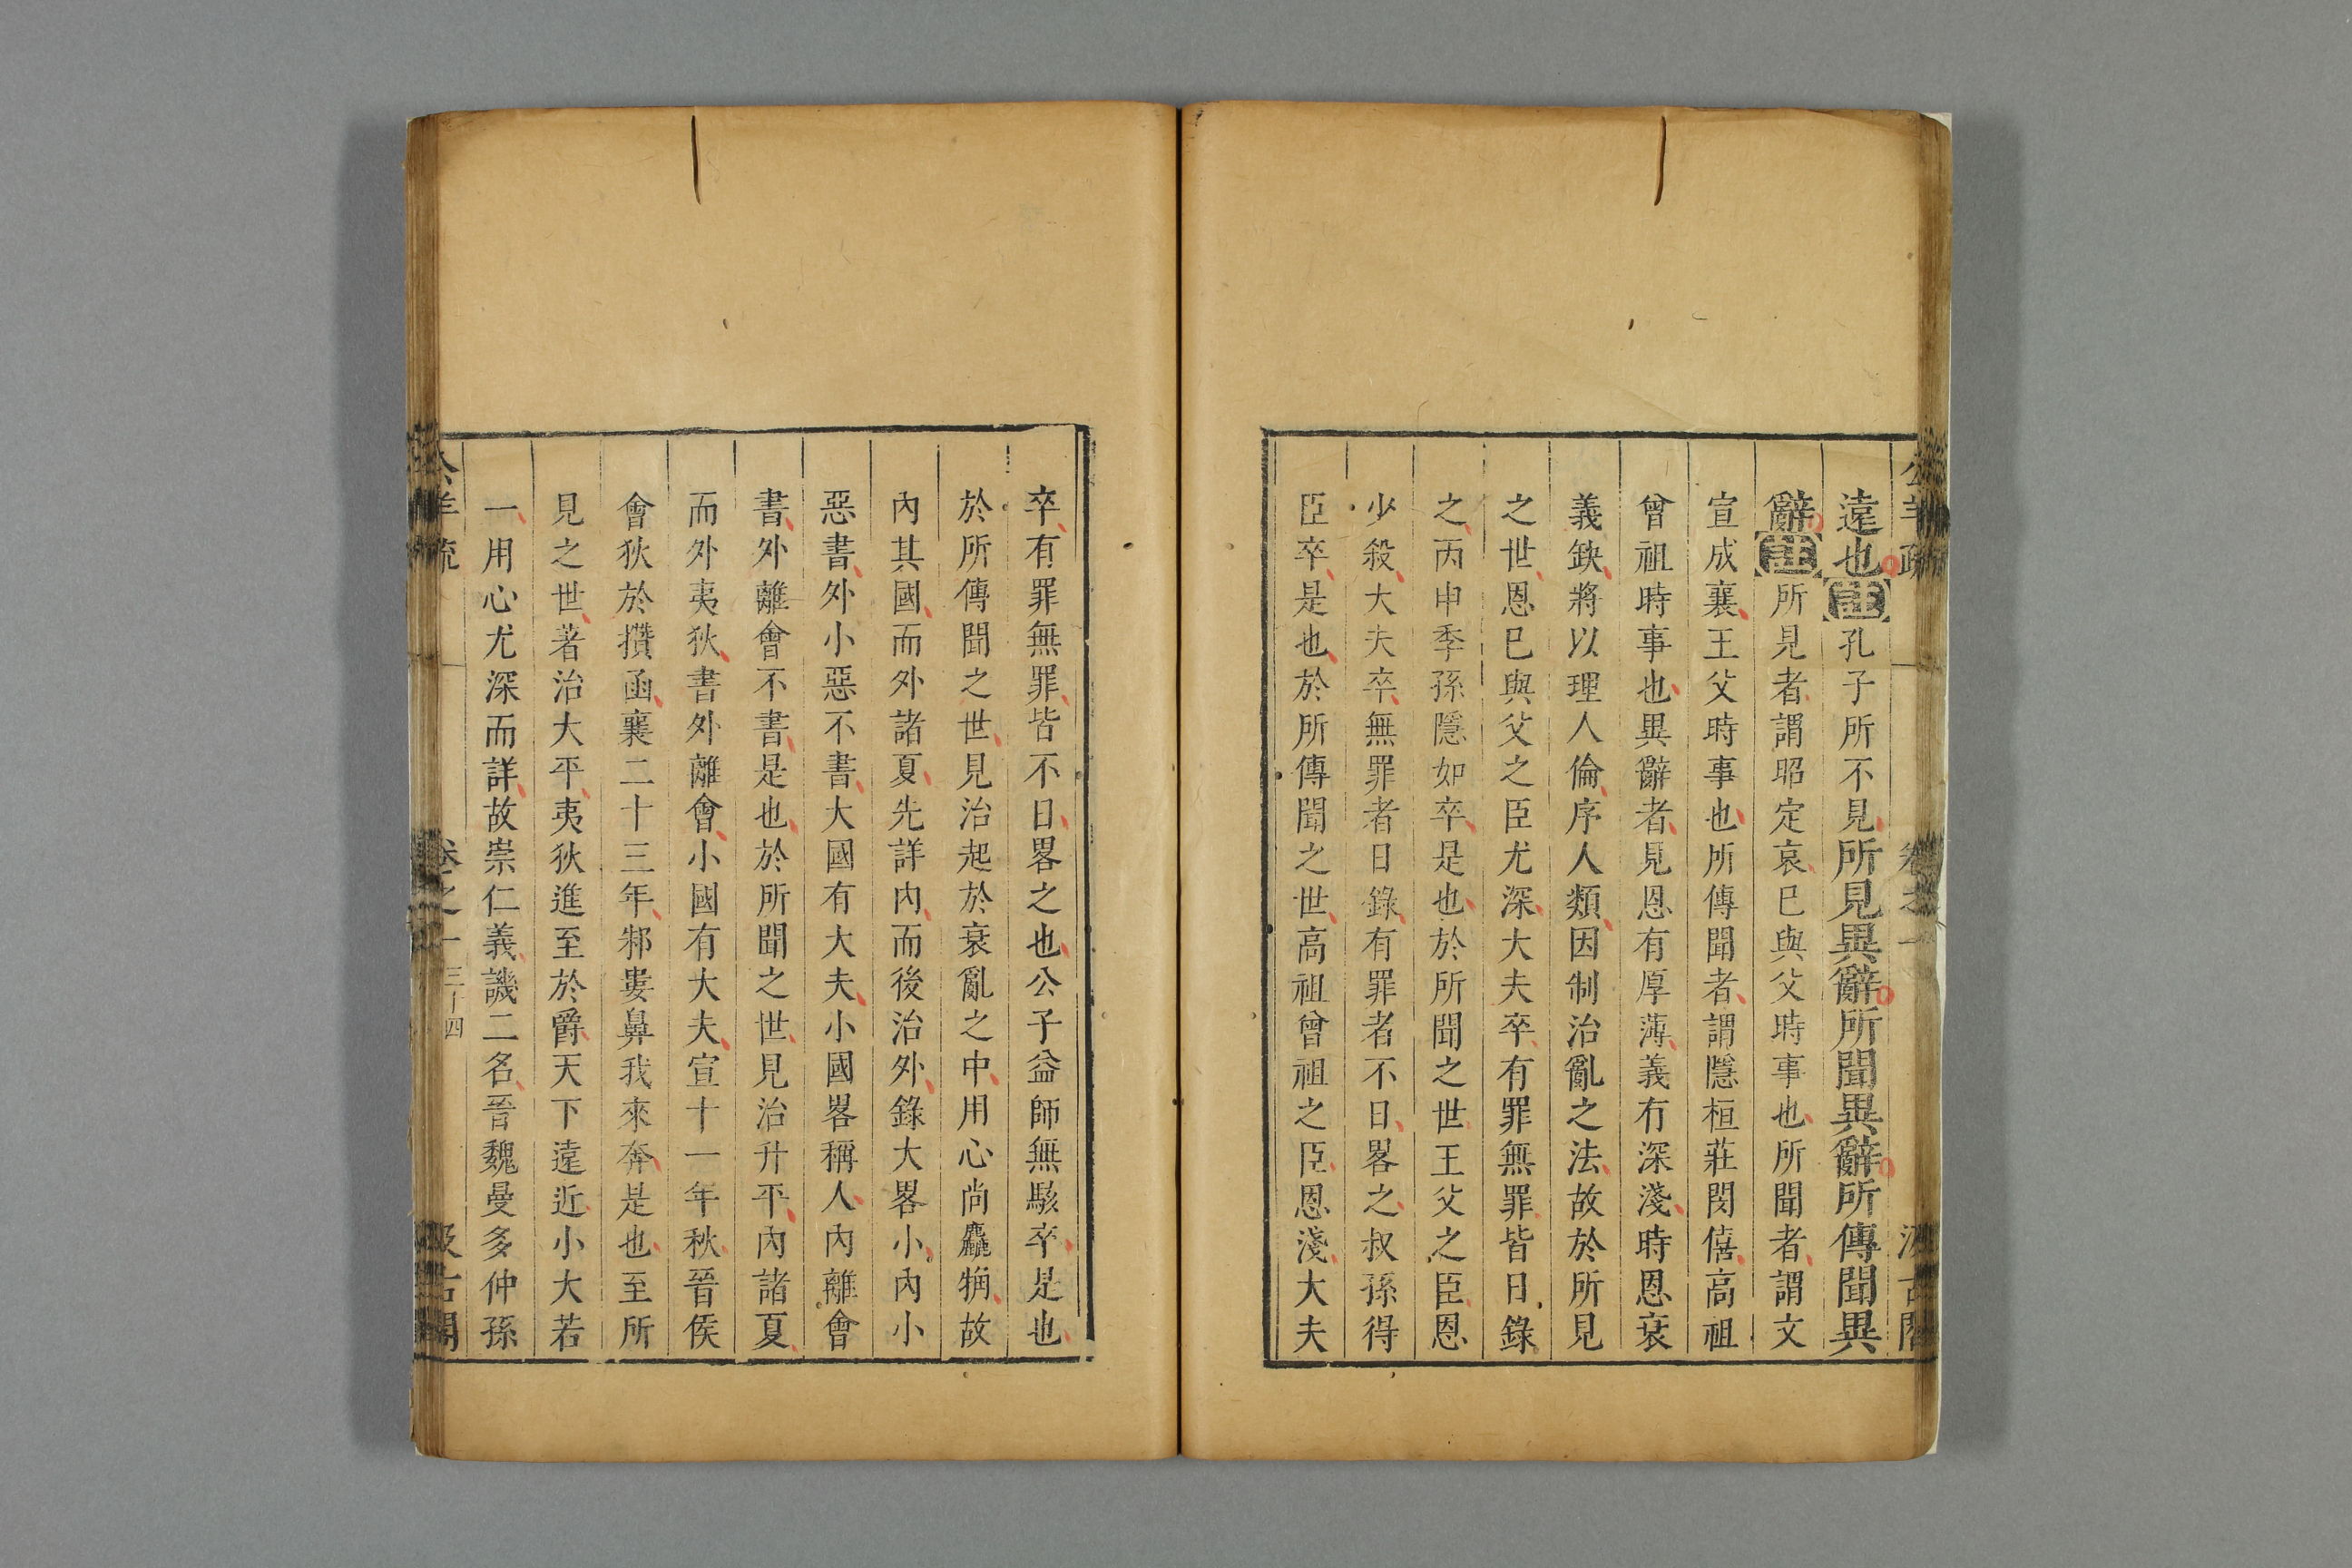 公羊疏 卷之一 汲古閣
遠也註孔子所不見所見異辭所聞異辭所傳聞異
辭註所見者謂昭定哀巳與父時事也所聞者謂文
宣成襄王父時事也所傳聞者謂隱桓莊閔僖高祖
曾祖時事也異辭者見恩有厚薄義有深淺時恩衰
義缺將以理人倫序人類因制治亂之法故於所見
之世恩巳與父之臣尤深大夫卒有罪無罪皆日錄
之丙申季孫隱如卒是也於所聞之世王父之臣恩
少殺大夫卒無罪者日錄有罪者不日畧之叔孫得
臣卒是也於所傳聞之世高祖曾祖之臣恩淺大夫
卒有罪無罪皆不日畧之也公子益師無駭卒是也
於所傳聞之世見治起於衰亂之中用心尚麤觕故
內其國而外諸夏先詳內而後治外錄大畧小內小
惡書外小惡不書大國有大夫小國畧稱人內離會
書外離會不書是也於所聞之世見治升平內諸夏
而外夷狄書外離會小國有大夫宣十一年秋晉侯
會狄於攢函襄二十三年邾婁鼻我來奔是也至所
見之世著治大平夷狄進至於爵天下遠近小大若
一用心尤深而詳故崇仁義譏二名晉魏曼多仲孫
公羊疏 卷之一 三十四 汲古閣